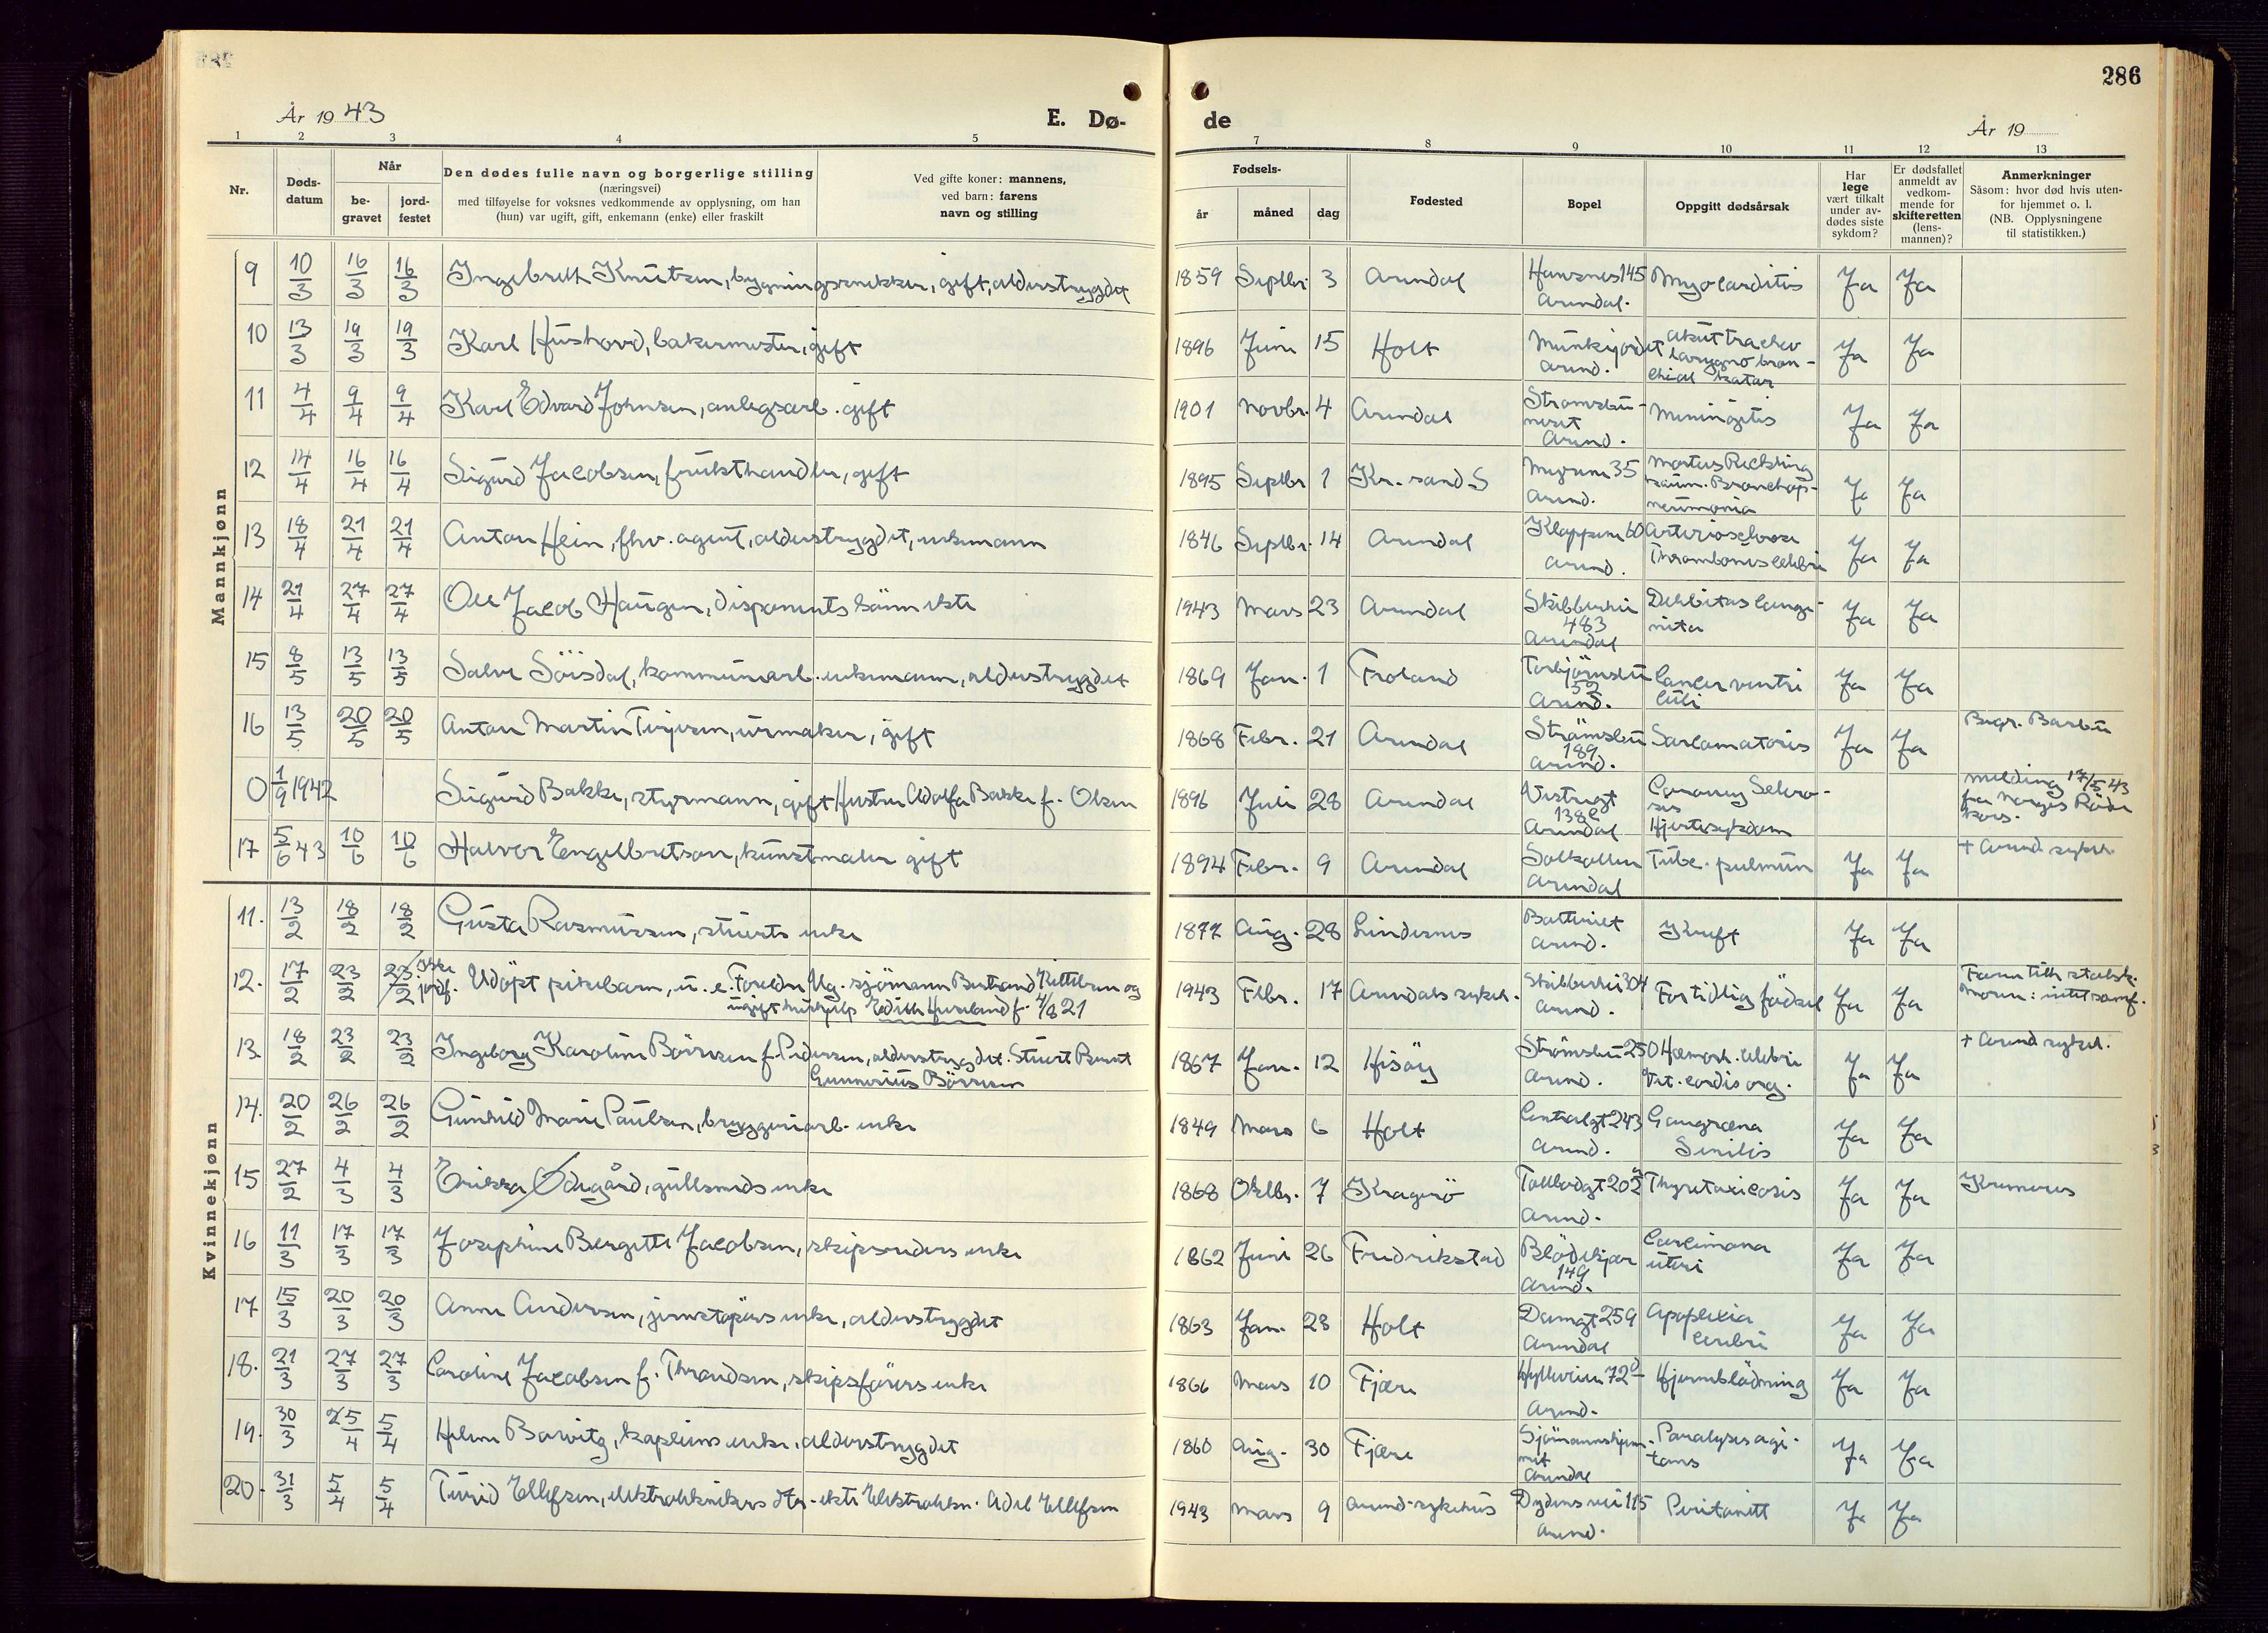 286
År 19 43
E. Dø-
de
År 19
1 2 3 4 5
7 8 9 10 11 12 13
Nr.
Døds-
datum
Når
be-
gravet
jord-
festet
Den dødes fulle navn og borgerlige stilling
(næringsvei)
med tilføyelse for voksnes vedkommende av opplysning, om han
(hun) var ugift, gift, enkemann (enke) eller fraskilt
Ved gifte koner: mannens,
ved barn: farens
navn og stilling
Fødsels-
år
måned
dag
Fødested
Bopel
Oppgitt dødsårsak
Har
lege
vært tilkalt
under av-
dødes siste
sykdom?
Er dødsfallet
anmeldt av
vedkom-
mende for
skifteretten
(lens-
mannen)?
Anmerkninger
Såsom: hvor død hvis uten-
for hjemmet o. l.
(NB. Opplysningene
til statistikken.)
Mannkjønn
9 10/3 16/3 16/3 Ingebrett Knutsen, bygningssnekker, gift, alderstrygdet 1859 Septbr. 3 Arendal 145 Arendal. Myocarditis Ja Ja
10 13/3 19/3 19/3 Karl Hushovd, bakermester, gift 1896 Juni 15 Holt Munkejordet Arend. akut tracheo laryngo bron-
chial katar Ja Ja
11 4/4 9/4 9/4 Karl Edvard Johnsen, anlegsarb. gift 1901 Novbr. 4 Arendal Strømsbu-
neset
Arend. Meningitis Ja Ja
12 14/4 16/4 16/4 Sigurd Jacobsen, frukthandler, gift 1895 Septbr 1 Kr.sand S Myrene 35 Arend. Morbus Recklinghaus. Bronchop-
neumonia Ja Ja
13 18/4 21/4 21/4 Anton Hein, fhv. agent, alderstrygdet, enkemann 1846 Septbr. 14 Arendal Kløppene 60 Arend. Arteriosclerose Thrombosis cerebri Ja Ja
14 21/4 27/4 27/4 Ole Jacob Haugen, disponents sønn ekte 1943 Mars 23 Arendal Skibberhei 483 Arendal Debilitas conge-
nita Ja Ja
15 8/5 13/5 13/5 Salve Söisdal, kommunearb. enkemann, alderstrygdet 1869 Jan. 1 Froland Torbjørnsbu 52 Arend. Cancer ventri
culi Ja Ja
16 13/5 20/5 20/5 Anton Martin Terjesen, urmaker, gift 1868 Febr. 21 Arendal Strømsbu 189 Arend. Sarcomatosis Ja Ja Begr. Barbu
0 1/9 1942 Sigurd Bakke, styrmann, gift Hustru Adolfa Bakke f. Olsen 1896 Juli 28 Arendal Vestregt 138c Arendal Coronary Sclero-
sis
Hjertesykdom melding 17/5 43 fra Norges Røde
kors.
17 5/6 43 10/6 10/6 Halvor Engelbretson, kunstmaler gift 1894 Febr. 9 Arendal Solkollen Arendal Tube. pulmun Ja Ja + Arend sykeh.
Kvinnekjønn
11. 13/2 18/2 18/2 Gusta Rasmussen, stuerts enke 1877 Aug. 28 Lindesnes Batteriet Arend. Kreft Ja Ja
12. 17/2 23/2 23/2 ikke jordf. Udøpt pikebarn, u. e. Foreldre Ug. sjømann Bertrand Kittelsen og
ugift hushjelp Edith f. 4/8 21 1943 Febr. 17 Arendals sykeh. Skibberhei 304 Arend. For tidlig fødsel Ja Ja Faren tilh statsk.
Moren: intet samf.
13 18/2 23/2 23/2 Ingeborg Karoline Börresen f. Pedersen, alderstrygdet. Stuert Bernt
Gunnerius Börresen 1867 Jan. 12 Hisöy Strömsbu 250 Arend. Hæmorh. cerebri
Vit. cordis org. Ja Ja + Arend sykeh.
14. 20/2 26/2 26/2 Gunhild Marie Paulsen, bryggeriarb. enke 1849 Mars 6 Holt Centralgt 243 Arend. Gangræna
Senilis Ja Ja
15 27/2 4/3 4/3 Erikka Ødegård, gullsmeds enke 1868 Oktbr. 7 Kragerö Tollbodgt 202 Arend. Thyretoxicosis Ja Ja Kremeres
16 11/3 17/3 17/3 Josephine Bergitte Jacobsen, skipsreders enke 1862 Juni 26 Fredrikstad Blödekjær 149 Arend. Carcinona
uteri Ja Ja
17 15/3 20/3 20/3 Anne Andersen, jernstøpers enke, alderstrygdet 1863 Jan. 23 Holt Damgt 259 Arendal Apoplexia
cerebri Ja Ja
18. 21/3 27/3 27/3 Caroline Jacobsen f. Throndsen, skipsförers enke 1866 Mars 10 Fjære Hylleveien 72 Arend. Hjerneblödning Ja Ja
19. 30/3 5/4 5/4 Helene Borvitz, kapteins enke, alderstrygdet 1860 Aug. 30 Fjære Sjömannshjem-
met
Arendal Paralysis agi-
tans Ja Ja
20. 31/3 5/4 5/4 Turid Ellefsen, elektroteknikers dtr. ekte Elektrotekn. Adel Ellefsen 1943 Mars 9 Arend. sykehus Dydens vei 115 Arend. Peritonitt Ja Ja